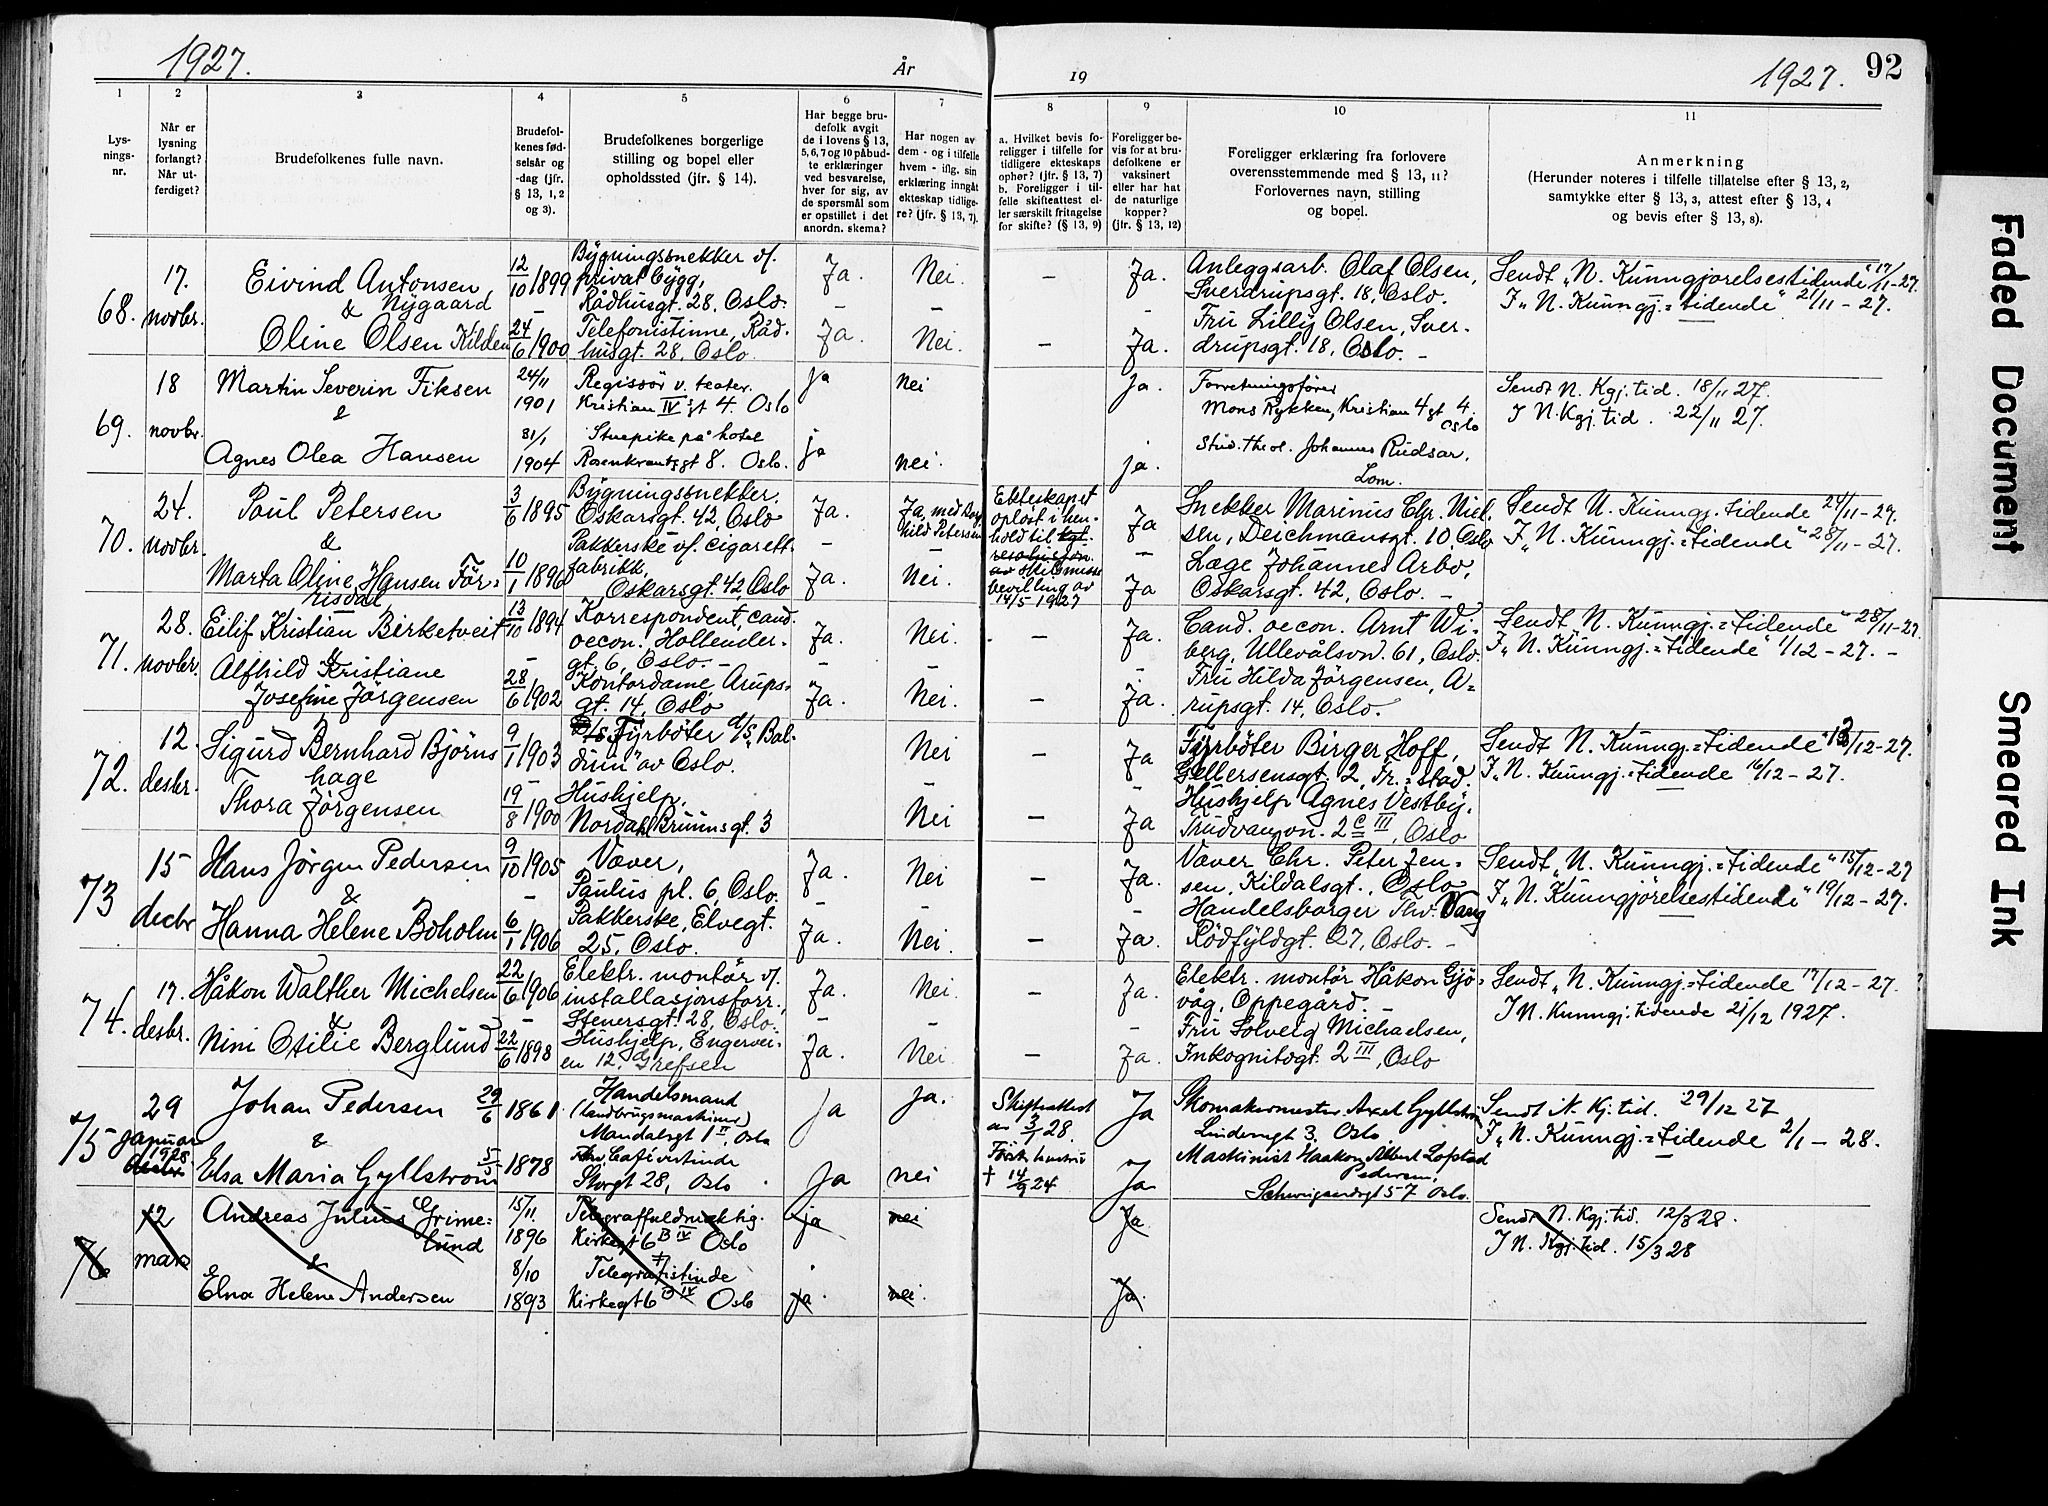 1927.
År
19
1927.
92
1 2 3 4 5 6 7 8 9 10 11
Lys-
nings-
nr.
Når er
lysning
forlangt?
Når ut-
ferdiget?
Brudefolkenes fulle navn.
Brudefol-
kenes fød-
selsår og
-dag (jfr.
§ 13, 1, 2
og 3).
Brudefolkenes borgerlige
stilling og bopel eller
opholdssted (jfr. § 14).
Har begge bru-
defolk avgit
de i lovens § 13,
5, 6, 7 og 10 påbud-
te erklæringer
ved besvarelse,
hver for sig, av
de spørsmål som
er opstillet i det
anordn. skema?
Har nogen av
dem - og i tilfelle
hvem - iflg. sin
erklæring inngåt
ekteskap tidlige-
re? (jfr. § 13, 7).
a. Hvilket bevis fo-
religger i tilfelle for
tidligere ekteskaps
ophør? (jfr. § 13, 7)
b. Foreligger i til-
felle skifteattest el-
ler særskilt fritagelse
for skifte? (§ 13, 9)
Foreligger be-
vis for at bru-
defolkene er
vaksinert
eller har hat
de naturlige
kopper?
(jfr. § 13, 12)
Foreligger erklæring fra forlovere
overensstemmende med § 13, 11?
Forlovernes navn, stilling
og bopel.
Anmerkning
(Herunder noteres i tilfelle tillatelse efter § 13, 2,
samtykke efter § 13, 3, attest efter § 13, 4
og bevis efter § 13, 8).
68.
17.
novbr.
Eivind Antonsen
& Nygaard
Oline Olsen Kilden
12/10 1899
24/6 1900
Bygningssnekker v/.
privat bygg,
Rådhusgt. 28, Oslo.
Telefonistinne, Råd-
husgt. 28, Oslo.
Ja.
Ja.
Nei.
Nei.
Ja.
Ja.
Anleggsarb. Olaf Olsen,
Sverdrupsgt. 18, Oslo.
Fru Lilly Olsen, Sver-
drupsgt. 18, Oslo. –
Sendt „N. Kunngjørelsestidende“ 17/11-27.
I „N. Kunngj.=tidende“ 21/11-27.
69.
18
novbr.
Martin Severin Fiksen
&
Agnes Olea Hansen
24/11
1901
31/1
1904
Regissör v. teater.
Kristian IV gt 4. Oslo
Stuepike på hotel
Rosenkrantzgt 8. Oslo.
ja
ja
nei
nei.
ja.
ja.
Forretningsfører
Mons Rykken, Kristian 4 gt 4.
Oslo
Stud. theol. Johannes Rudsar,
Lom.
Sendt N. Kgj. tid. 18/11 27.
I N. Kgj. tid. 22/11 27.
70.
24.
novbr.
Poul Petersen
&
Marta Oline Hansen För-
risdal
3/6 1895
10/1 1896
Bygningssnekker.
Oskarsgt. 42, Oslo
Pakkerske v/. cigarett-
fabrikk,
Oskarsgt. 42, Oslo
Ja.
Ja.
Ja, med Borg-
hild Petersen
Nei.
Ekteskapet
opløst i hen-
hold til kgl.
resolusjon
av skilsmisse
bevilling av
14/5 1927
Ja
Ja
Snekker Marinus Chr. Niel-
sen, Deichmansgt. 10, Oslo
Læge Johannes Arbo,
Oskarsgt. 42, Oslo. –
Sendt N. Kunngj. tidende 24/11-27.
I „N. Kunngj.=tidende“ 28/11-27.
71.
28.
novbr.
Eilif Kristian Birketveit
&
Alfhild Kristiane
Josefine Jörgensen
13/10 1894
28/6 1902
Korrespondent, cand.
oecon. Hollender-
gt. 6, Oslo. –
Kontordame, Arups-
gt. 14, Oslo
Ja.
Ja.
Nei.
Nei.
Ja.
Ja.
Cand. oecon. Arnt Wi-
berg, Ullevålsvn. 61, Oslo.
Fru Hilda Jörgensen, A-
rupsgt. 14, Oslo.
Sendt „N. Kunngj.=tidende“ 28/11-27.
I „N. Kunngj.=tidende“ 1/12-27. –
72.
12.
desbr.
Sigurd Bernhard Björns-
hage
Thora Jörgensen
9/1 1903
19/8 1900
Fyrböter d/s „Bal-
duin“ av Oslo.
Hushjelp,
Nordahl Bruunsgt. 3
Nei
Nei
Ja
Ja
Fyrböter Birger Hoff,
Gellersensgt. 2, Fr.=stad.
Hushjelp Agnes Vestby,
Trudvangvn. 2 C III, Oslo
Sendt N. Kunngj.=tidende 13/12-27.
I „N. Kunngj.=tidende 16/12-27.
73
15
decbr
Hans Jörgen Pedersen
&
Hanna Helene Boholm
9/10 1905
6/1 1906
Væver,
Paulus pl. 6, Oslo.
Pakkerske, Elvegt.
25, Oslo.
Ja.
Ja.
Nei
Nei.
Ja.
Ja.
Væver Chr. Peter Jen-
sen, Kildalsgt., Oslo
Handelsborger Thv. Vang
Rödfyldgt. 27, Oslo. –
Sendt „N. Kunngj.=tidende“ 15/12-27
I „N. Kunngjörelsestidende“ 19/12-27.
74.
17.
desbr.
Håkon Walther Michelsen
&
Nini Otilie Berglund
22/6 1906
22/6 1898
Elektr. montör v/.
installasjonsforr.,
Stenersgt. 28, Oslo.
Hushjelp, Engervei-
en 12, Grefsen
Ja.
Ja.
Nei.
Nei.
Ja.
Ja.
Elektr. montör Håkon Gjö-
våg, Oppegård. –
Fru Solveig Michaelsen,
Inkognitogt. 2 III, Oslo
Sendt „N. Kunngj.=tidende 17/12-27.
I N. Kunngj. tidende 21/12 1927.
75
29
januar
1928
decbr
Johan Pedersen
&
Elsa Maria Gyllstrom
29/6 1861
5/5 1878
Handelsmand
(landbrugsmaskiner)
Mandalsgt 1 II, Oslo
Caféværtinde
Storgt 28, Oslo
Ja
Ja
Ja.
nei
Skifteattest
av 3/1 28.
Förste hustru
† 14/9 24
Ja
Ja
Skomakermester Axel Gyllström
Lindernsgt 3, Oslo
Maskinist Haakon Albert Lofstad
Pedersen,
Schweigaardsgt 57 Oslo.
Sendt N. Kj. tid. 29/12 27
I „N. Kunngj.=tidende 2/1-28.
76
12
mars
Andreas Julius Grime-
lund
&
Elna Helene Andersen
15/11
1896
8/10
1893
Telegraffuldmektig.
Kirkegt 6 B IV Oslo
Telegrafistinde
Kirkegt 6 B IV Oslo
ja
ja
nei
nei.
Ja.
Ja.
Sendt N. Kgj. tid. 12/3 28.
I N. Kgj. tid. 15/3 28
Faded Document
Smeared Ink